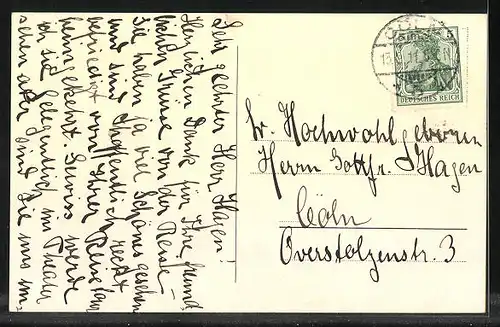 Sehr geehrter Herr Hagen!
Herzlichen Dank für Ihre freund-
lichen Grüsse von der Reise –
Sie haben ja viel Schönes gesehen
und sind hoffentlich recht
befriedigt von Ihrer Reise
heimgekehrt. Gewiss werde
ich sie gelegentlich im Theater
sehen aber sind Sie uns im-
CÖLN
DEUTSCHES REICH
Sr. Hochwohlgeboren
Herrn Gottfr. Hagen
Cöln
Overstolzenstr. 3